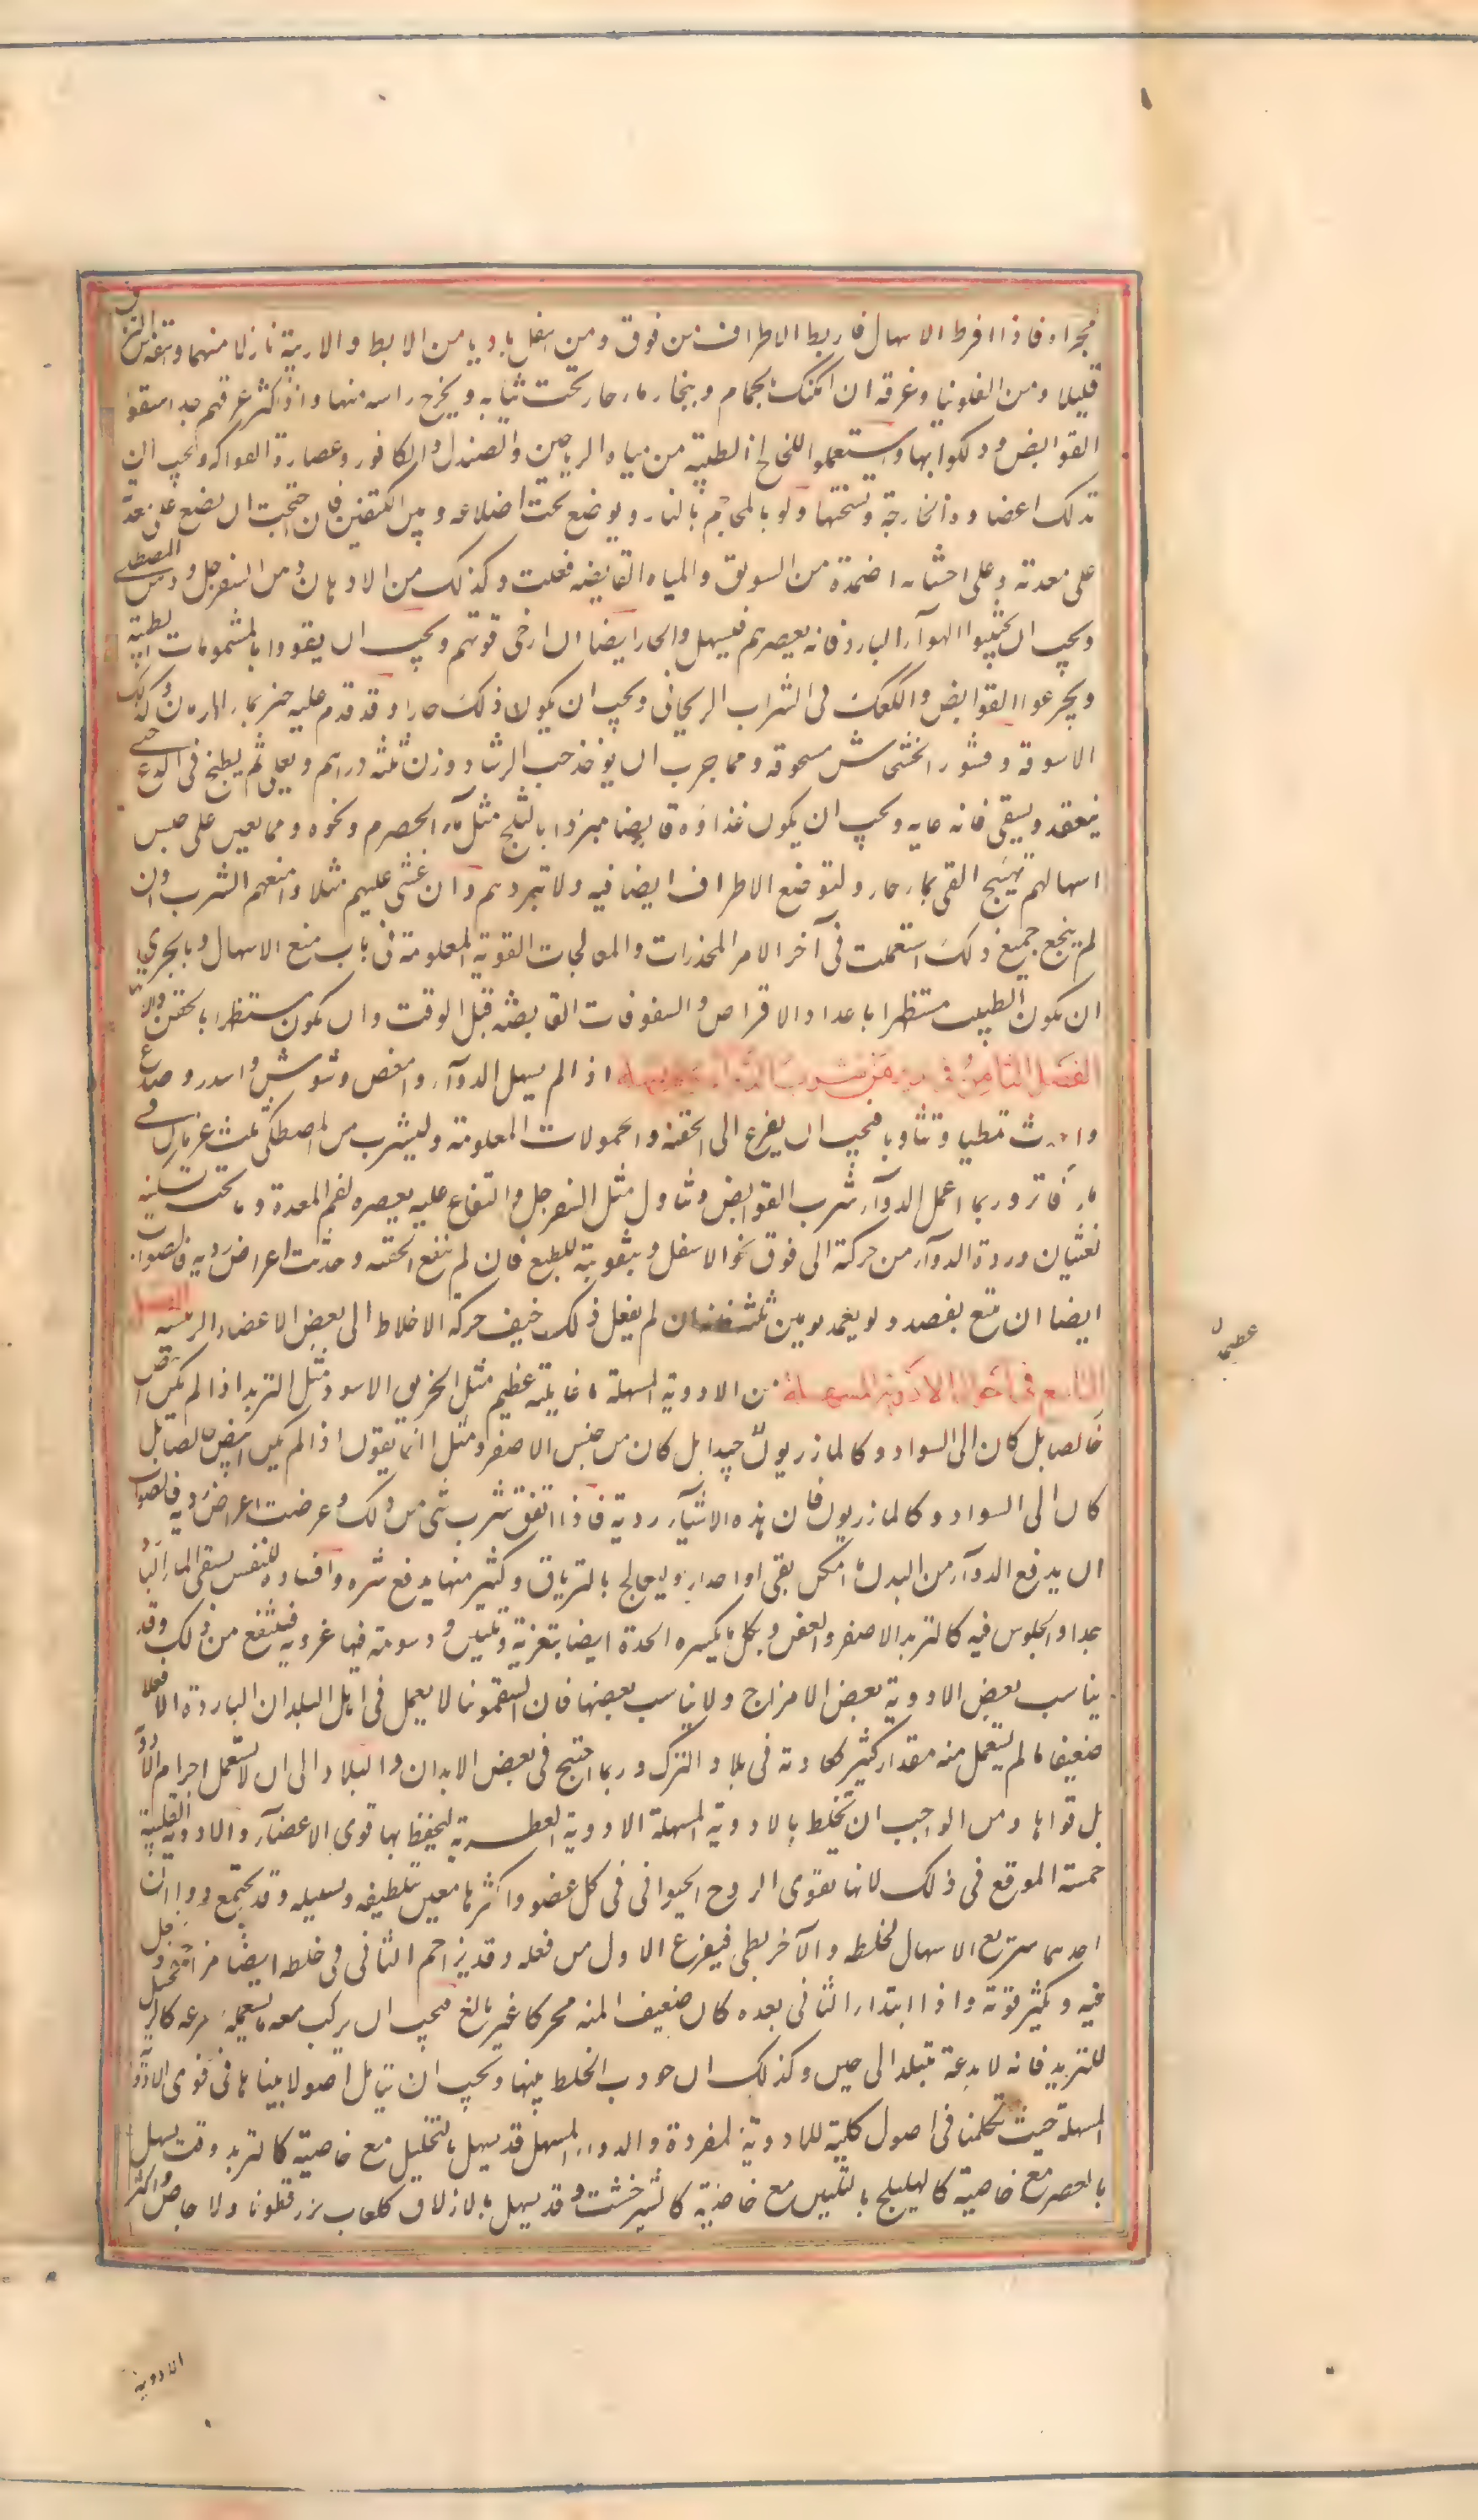 مجراه فاذا افرط الاسهال فاربط الاطراف من فوق ومن اسفل باديا من الابط والاربية نازلا منهما واسقه من الترياق
قليلا ومن الفلونيا وعرقه ان امكنك بحمام وببخار ماء حار تحت ثيابه ويخرج راسه منها واذا كثر عرقهم جدا سقوا
القوابض ودلكوا بها واستعملوا اللخالخ الطيبة من مياه الرياحين والصندل والكافور وعصارة الفواكه ويجب ان
تدلك اعضاوه الخارجة وتسخنها ولو بالمحاجم بالنار ويوضع تحت اضلاعه وبين الكتفين فان احتجت ان تضع على معدة
على معدته وعلى احشائه اضمدة من السويق والمياه القابضه فعلت وكذلك من الادهان دهن السفرجل ودهن المصطكى
ويجب ان يجتنبوا الهوآء البارد فانه يعصرهم فيسهل والحار ايضا ان ارخى قوتهم ويجب ان يقووا بالمشمومات الطيبة
ويجرعوا القوابض والكعك فى الشراب الريحانى ويجب ان يكون ذلك حارا وقد قدم عليه خبز بماء الرمان وكذلك
الاسوقة وقشور الخشخاش مسحوقة ومما جرب ان يوخذ حب الرشاد وزن ثلثة دراهم ويقلى ثم يطبخ فى الدوغ حتى
ينعقد ويسقى فانه غايه ويجب ان يكون غذاوه قابضا مبردا بالثلج مثل ماء الحصرم ونحوه ومما يعين على حبس
اسهالهم تهييج القى بماء حار ولتوضع الاطراف ايضا فيه ولا تبردهم وان غشى عليهم مثلا وامنعهم الشرب وان
لم ينجع جميع ذلك استعملت فى آخر الامر المخدرات والمعالجات القوية المعلومة فى باب منع الاسهال وبالحرى
ان يكون الطبيب مستظهرا باعداد الاقراص والسفوفات القابضة قبل الوقت وان يكون مستظهرا بالحقن والا
الفصل الثامن فى من شرب الدوآء ولم يسهله اذا لم يسهل الدوآء وامغص وشوش واسدر وصدع
واحدث تمطيا وتثاوبا فيجب ان يفزع الى الحقنة والحمولات المعلومة وليشرب من المصطكى ثلث كرمات فى
ماء فاتر وربما اعمل الدوآء شرب القوابض وتناول مثل السفرجل والتفاح عليه يعصره لفم المعدة وما تحته تسكينه
لغثيان ورده الدوآء من حركة الى فوق نحو الاسفل وبتقويته للطبع فان لم تنفع الحقنه وحدثت اعراض رديه فالصواب
ايضا ان تتبع بفصد ولو بعد يومين ثلثة فان لم يفعل ذلك خيف حركة الاخلاط الى بعض الاعضاء الرئيسه الفصل
التاسع فى احوال الادوية المسهلة من الادوية المسهلة ما غايلته عظيم مثل الخربق الاسود ومثل التربد اذا لم يكن ابيض
خالصا بل كان الى السواد وكالمازريون جيدا بل كان من جنس الاصفر ومثل انما يقول اذا لم يكن ابيض خالصا بل
كان الى السواد وكالمازريون فان هذه الاشيآء ردية فاذا اتفق شرب شى من ذلك وعرضت اعراض ردية فالصواب
ان يدفع الدوآء من البدن ما امكن بقى او احدار وليعالج بالترياق وكثير منها يدفع شره وافساده للنفس بسقى الماء البارد
جدا والجلوس فيه كالتربد الاصفر والعفن وبكل ما يكسره الحدة ايضا بتغرية وتليين ودسومة فيها غروية فينتفع من ذلك وقد
يناسب بعض الادوية بعض الامزاج ولا يناسب بعضها فان السقمونيا لا يعمل فى اهل البلدان الباردة الا فعلا
ضعيفا ما لم يستعمل منه مقدار كثير كعادته فى بلاد الترك وربما احتيج فى بعض الابدان والبلاد الى ان لا يستعمل اجرام الادوية
بل قواها ومن الواجب ان يخلط بالادوية المسهلة الادوية العطرية ليحفظ بها قوى الاعضآء والادوية القلبية
حسنة الموقع فى ذلك لانها تقوى الروح الحيوانى فى كل عضو واكثرها معين بتلطيفه وتسييله وقد يجتمع دواان
احدهما سريع الاسهال لخلطه والآخر بطى فيفرغ الاول من فعله وقد يزاحم الثانى فى خلطه ايضا مزاحمة
فيه ويكثر قوته واذا ابتداء الثانى بعده كان ضعيف المنه محركا غير بالغ فيجب ان يركب معه ما يستعمله بسرعه كالزنجبيل
للتربد فانه لا يدعه يتبلد الى حين وكذلك ان جودب الخلط بينها ويجب ان يتامل اصولا بيناها فى قوى الادوية
المسهلة حيث تكلمنا فى اصول كلية للادوية المفردة والدواء المسهل قد يسهل بالتحليل مع خاصية كالتربد وقد يسهل
بالعصر مع خاصية كالهليلج بالتليين مع خاصية كالشيرخشت وقد يسهل بالازلاق كلعاب بزر قطونا والاجاص واكثر
عطيما
الادوية